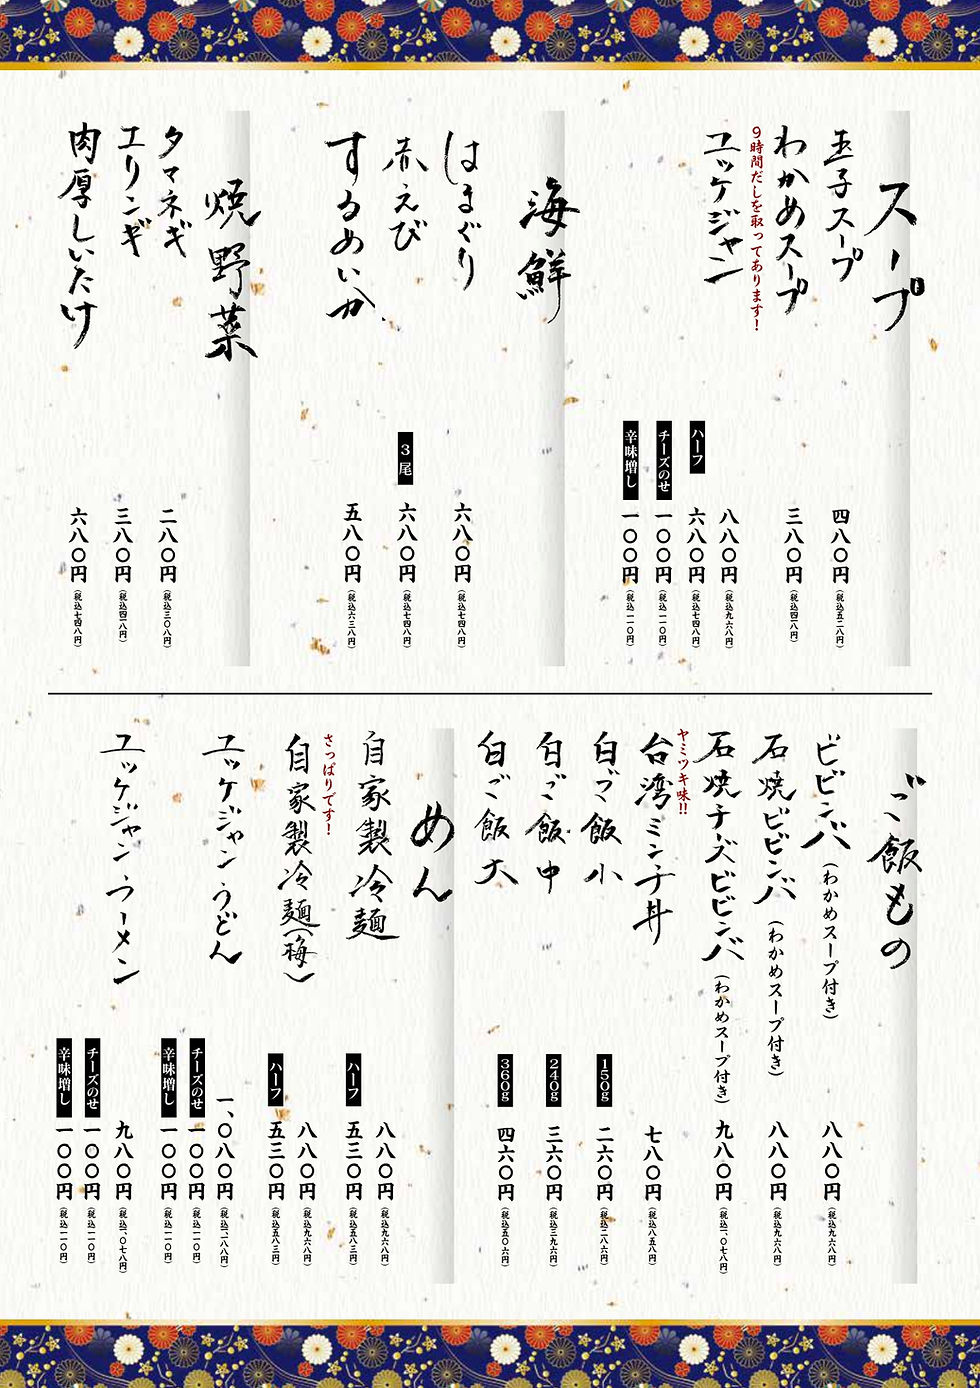 スープ
玉子スープ
四八〇円(税込五二八円)
わかめスープ
三八〇円(税込四一八円)
9時間だしを取ってあります!
ユッケジャン
八八〇円(税込九六八円)
ハーフ 六八〇円(税込七四八円)
チーズのせ 一〇〇円(税込一一〇円)
辛味増し 一〇〇円(税込一一〇円)
海鮮
はまぐり
六八〇円(税込七四八円)
赤えび
3尾 六八〇円(税込七四八円)
するめいか
五八〇円(税込六三八円)
焼野菜
タマネギ
二八〇円(税込三〇八円)
エリンギ
三八〇円(税込四一八円)
肉厚しいたけ
六八〇円(税込七四八円)
ご飯もの
ビビンバ(わかめスープ付き)
八八〇円(税込九六八円)
石焼ビビンバ(わかめスープ付き)
八八〇円(税込九六八円)
石焼チーズビビンバ(わかめスープ付き)
九八〇円(税込一、〇七八円)
ヤミツキ味!!
台湾ミンチ丼
七八〇円(税込八五八円)
白ご飯小
150g 二六〇円(税込二八六円)
白ご飯中
240g 三六〇円(税込三九六円)
白ご飯大
360g 四六〇円(税込五〇六円)
めん
自家製冷麺
八八〇円(税込九六八円)
ハーフ 五三〇円(税込五八三円)
さっぱりです!
自家製冷麺(梅)
八八〇円(税込九六八円)
ハーフ 五三〇円(税込五八三円)
ユッケジャンうどん
一、〇八〇円(税込一、一八八円)
チーズのせ 一〇〇円(税込一一〇円)
辛味増し 一〇〇円(税込一一〇円)
ユッケジャンラーメン
九八〇円(税込一、〇七八円)
チーズのせ 一〇〇円(税込一一〇円)
辛味増し 一〇〇円(税込一一〇円)